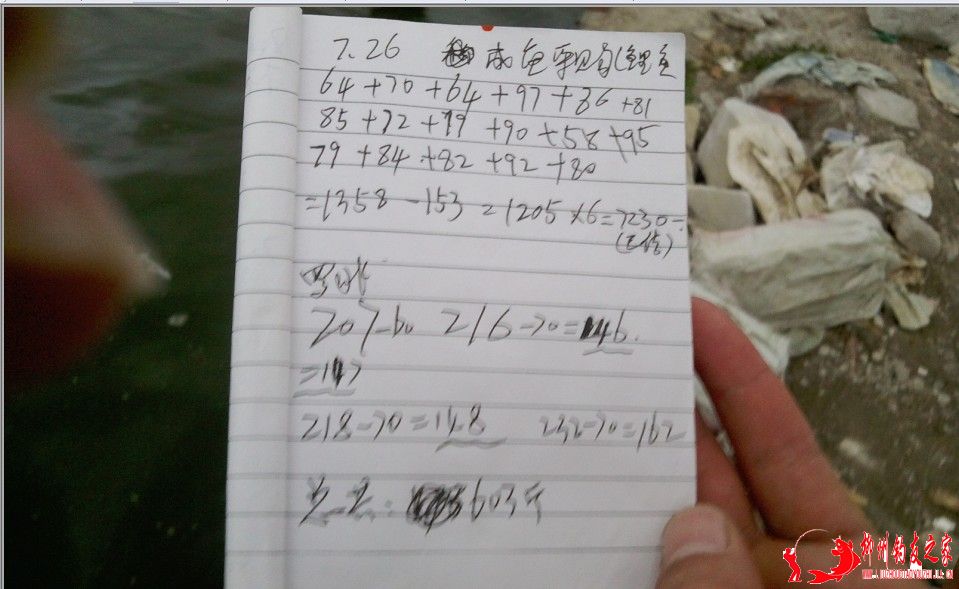 7.26 成鱼
64+70+64+97+86+81
85+72+79+90+58+95
79+84+82+92+80
=1358-153=1205×6=7230
207-60 216-70=146.
=147
218-70=148 232-70=162
603斤
柳州钓友之家